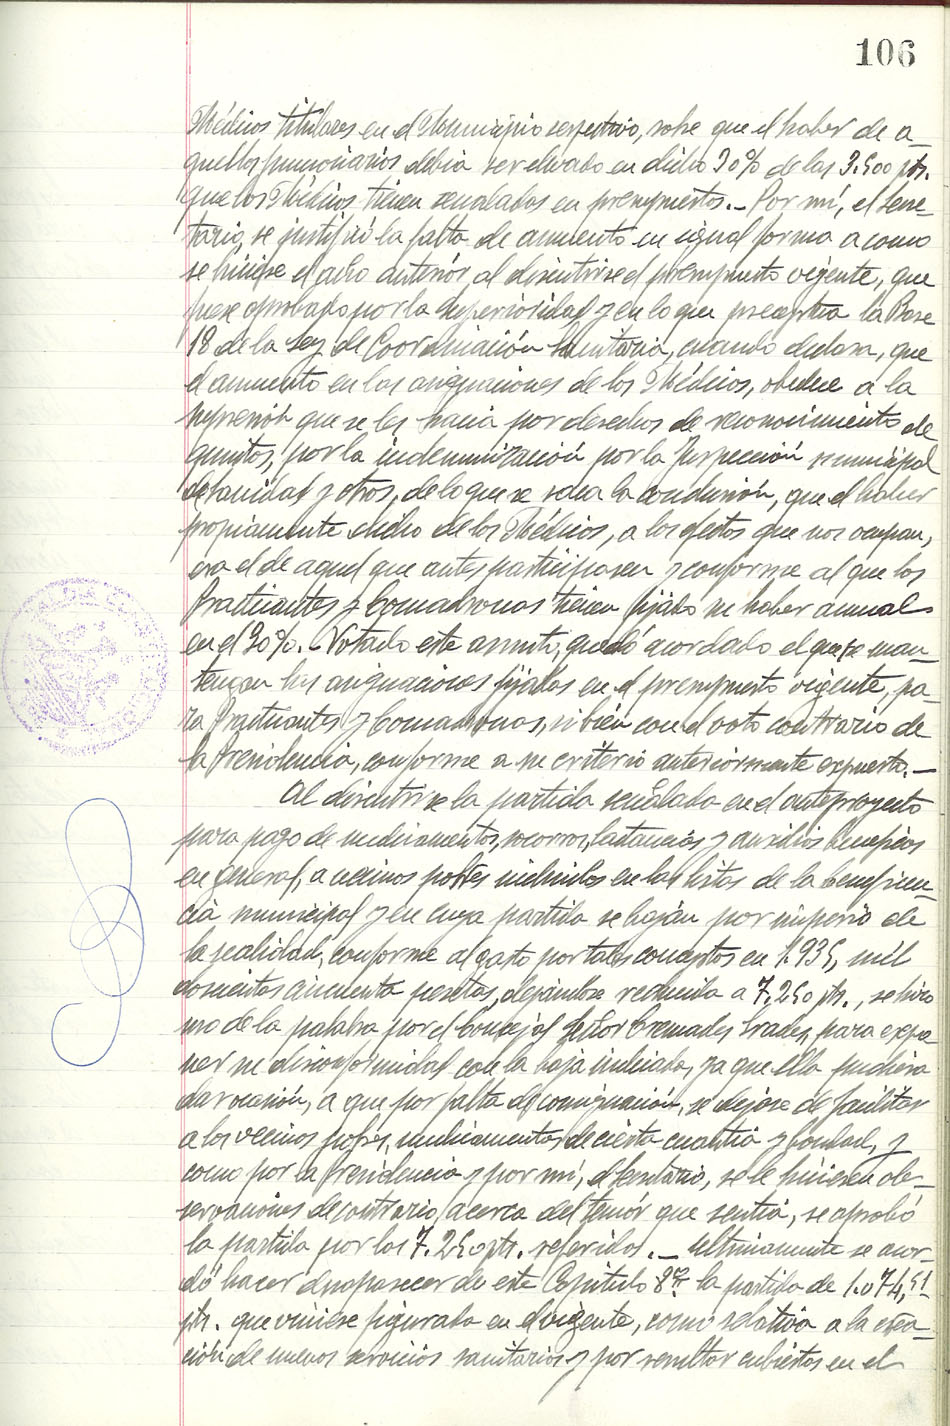 106
Médicos titulares en el Municipio respectivo, sobre que el haber de a-
quellos funcionarios debía ser elevado en dicho 30% de las 3.500 pts.
que los Médicos tienen señalados en presupuestos.- Por mí, el Secre-
tario, se justificó la falta de aumento en igual forma a como
se hiciese el año anterior, al discutirse el presupuesto vigente, que
fuese aprobado por la superioridad y en lo que preceptúa la Base
18 de la Ley de Coordinación Sanitaria, cuando declara, que
el aumento en las asignaciones de los Médicos, obedece a la
supresión que se les hacía por derechos de reconocimiento de
quintos, por la indemnización por la Inspección municipal
de sanidad y otros, de lo que se saca la conclusión, que el haber
propiamente dicho de los Médicos, a los efectos que nos ocupan,
era el de aquel que antes participasen y conforme al que los
Practicantes y Comadronas tienen fijado su haber anual
en el 30%.- Votado este asunto, quedó acordado el que se man-
tengan las asignaciones fijadas en el presupuesto vigente, pa-
ra Practicantes y Comadronas, si bién con el voto contrario de
la Presidencia, conforme a su criterio anteriormente expuesto.-
Al discutirse la partida señalada en el anteproyecto
para pago de medicamentos, socorros, lactancias y auxilios benéficos
en general, a vecinos pobres incluidos en las listas de la beneficen-
cia municipal y en cuya partida se bajan por imperio de
la realidad, conforme al gasto por tales conceptos en 1.935, mil
doscientas cincuenta pesetas, dejándose reducida a 7.250 pts., se hizo
uso de la palabra por el Concejal Señor Cremades Prades, para expo-
ner su disconformidad con la baja indicada, ya que ello pudiera
dar ocasión, a que por falta de consignación, se dejase de facilitar
a los vecinos pobres, medicamentos de cierta cuantía y bondad, y
como por la Presidencia y por mí, el Secretario, se le hiciesen ob-
servaciones de contrario, acerca del temor que sentía, se aprobó
la partida por las 7.250 pts. referidas.- Ultimamente se acor-
dó hacer desaparecer de este Capítulo 8º la partida de 1.074,51
pts. que viniese figurada en el vigente, como relativa a la crea-
ción de nuevos servicios sanitarios y por resultar cubiertos en el